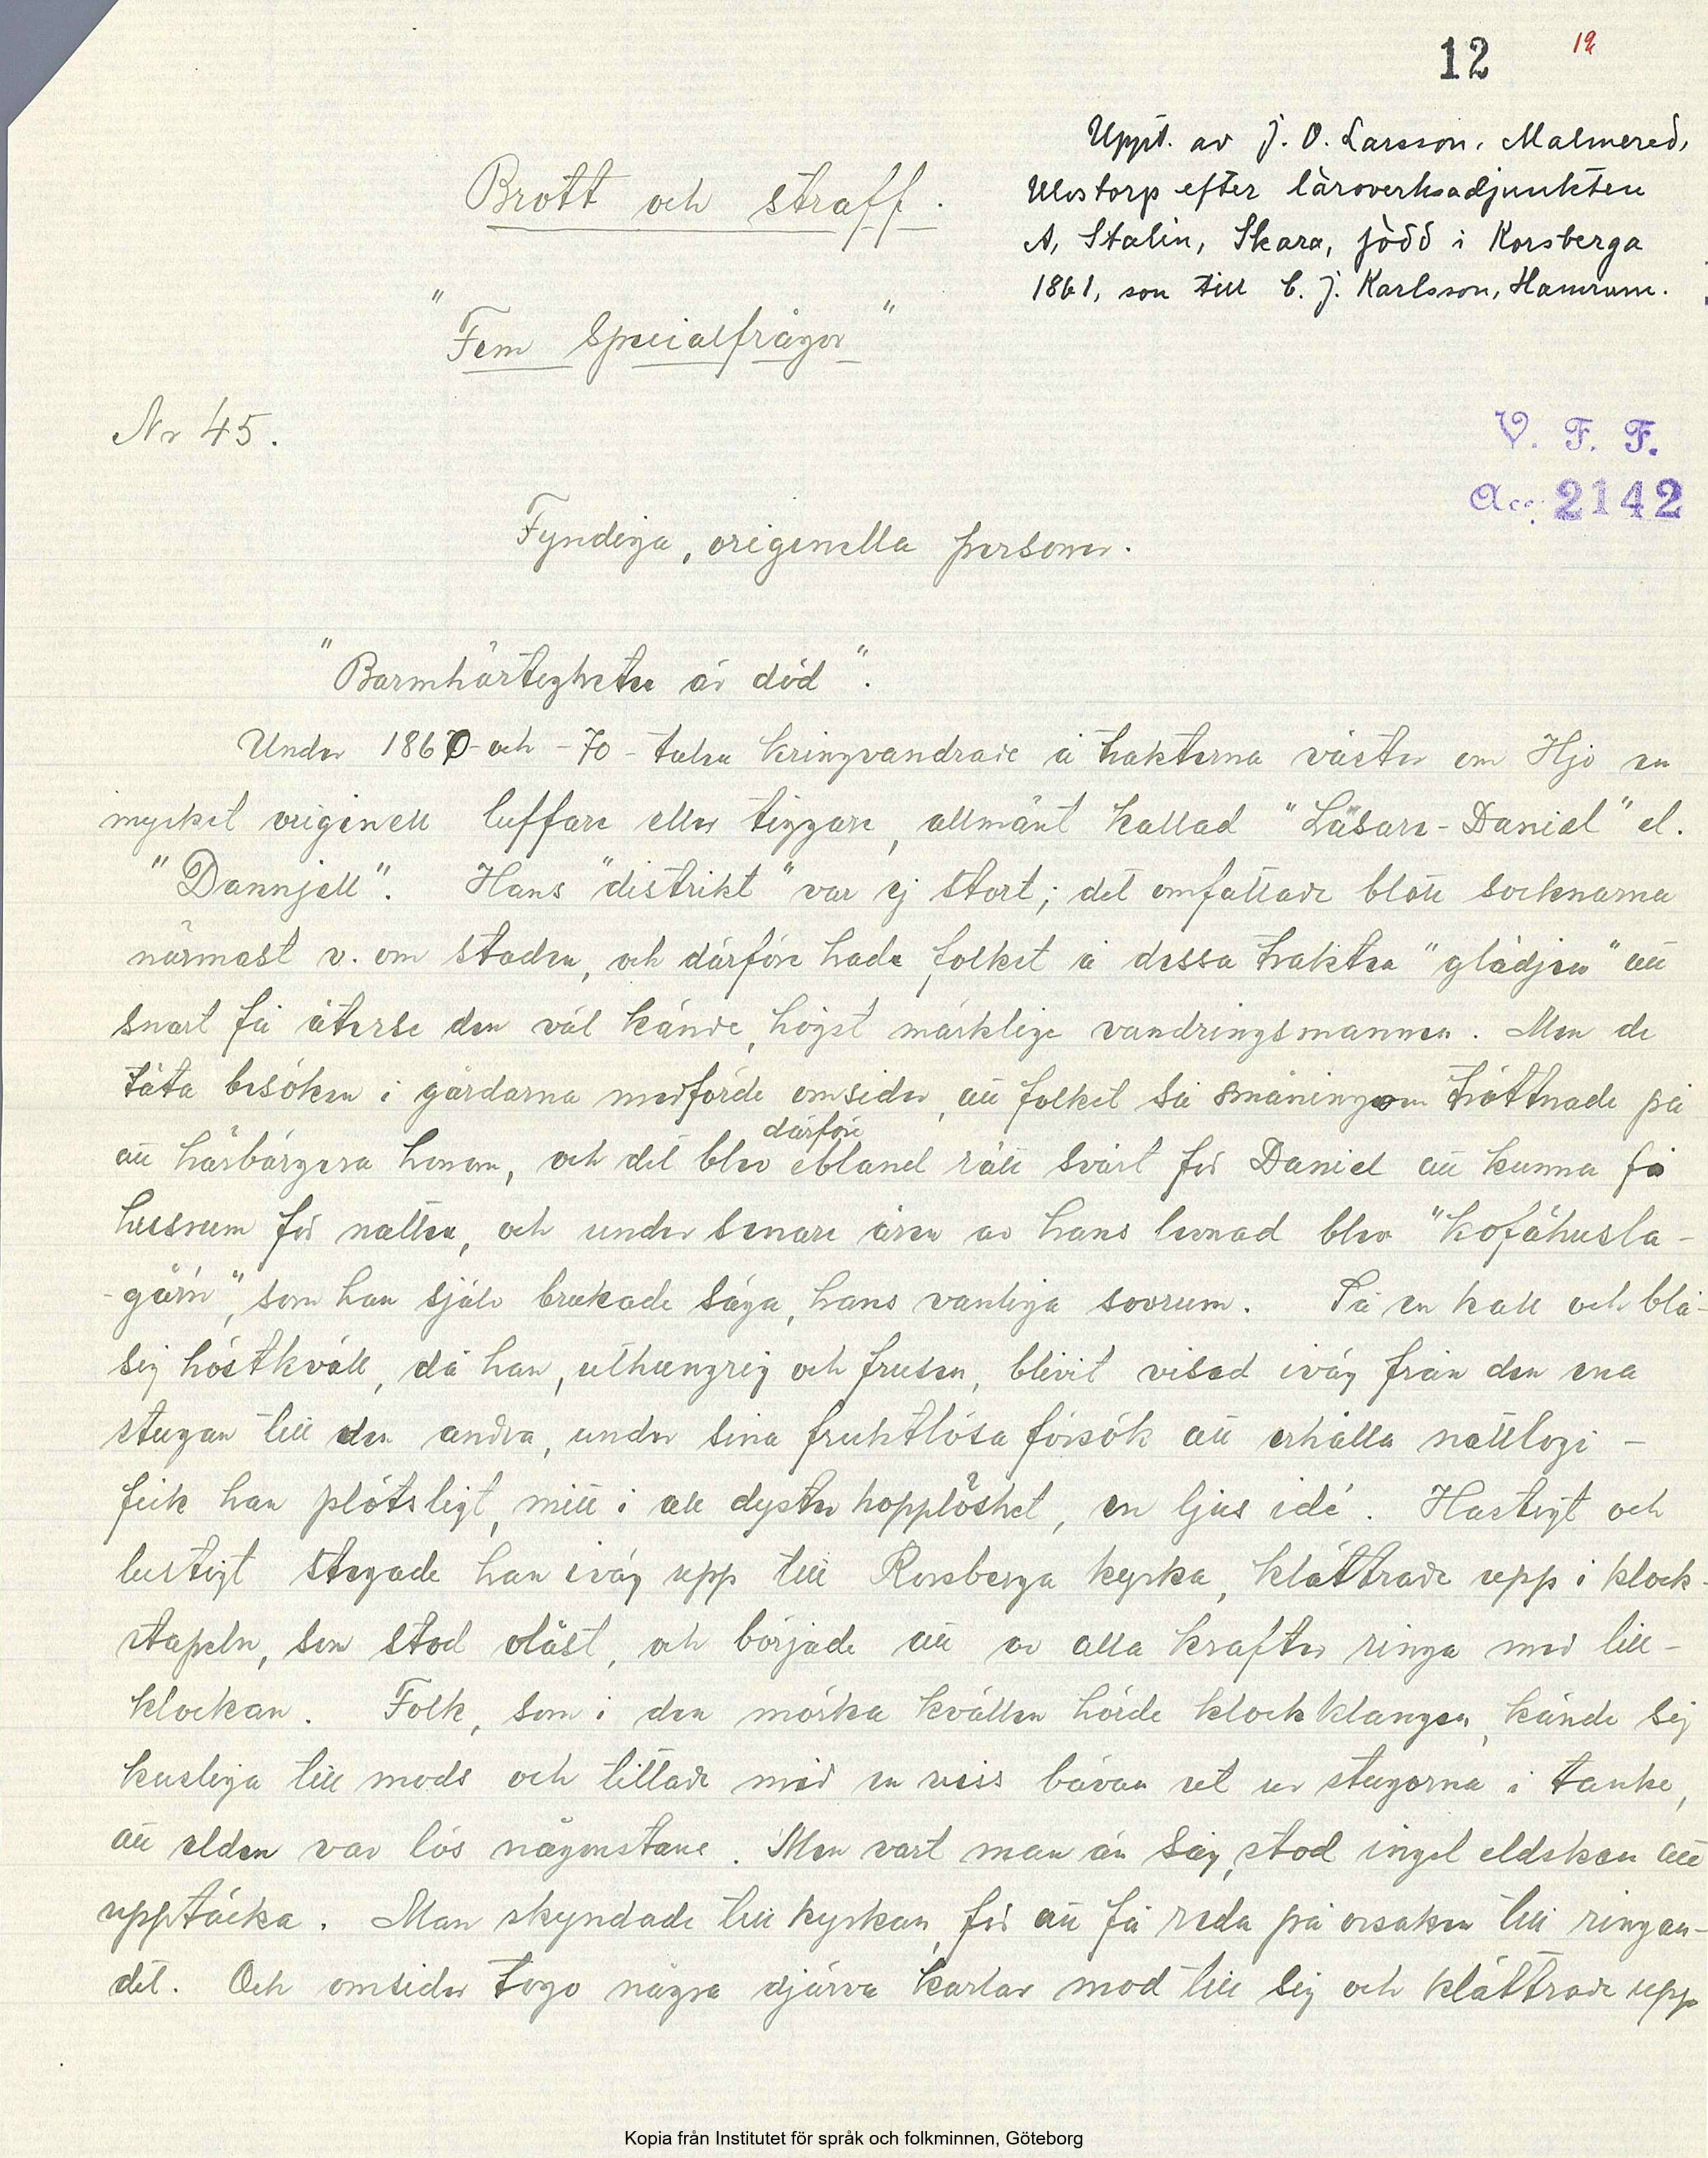 12 12
Uppt. av J. O. Larsson, Malmered,
Ulvstorp efter läroverksadjunkten
A, Stalin, Skara, född i Korsberga
1861, son till C. J. Karlsson, Hamrum.
Brott och straff.
"Fem Specialfrågor"
Nr 45.
V. F. F.
Acc. 2142
Fyndiga, originella personer.
"Barmhärtigheten är död".
Under 1860- och -70-talen kringvandrade i trakterna väster om Hjo en
mycket originell luffare eller tiggare, allmänt kallad "Läsare-Daniel" el.
"Dannjell". Hans "distrikt" var ej stort; det omfattade blott socknarna
närmast v. om staden, och därföre hade folket i dessa trakter "glädjen" att
snart få återse den väl kände, högst märklige vandringsmannen. Men de
täta besöken i gårdarna medförde omsider, att folket så småningom tröttnade på
att härbärgera honom, och det blev därföre ibland rätt svårt för Daniel att kunna få
husrum för natten, och under senare åren av hans levnad blev "kofähusla-
-gårn", som han själv brukade säga, hans vanliga sovrum. På en kall och blå-
sig höstkväll, då han, uthungrig och frusen, blivit visad iväg från den ena
stugan till den andra, under sina fruktlösa försök att erhålla nattlogi -
fick han plötsligt, mitt i all dyster hopplöshet, en ljus idé. Hastigt och
lustigt stegade han iväg upp till Korsberga kyrka, klättrade upp i klock-
stapeln, som stod oläst, och började att av alla krafter ringa med lill-
klockan. Folk, som i den mörka kvällen hörde klockklangen, kände sig
kusliga till mods och tittade med en viss bävan ut ur stugorna i tanke,
att elden var lös någonstans. Men vart man än såg, stod inget eldsken att
upptäcka. Man skyndade till kyrkan, för att få reda på orsaken till ringan-
det. Och omsider togo några djärva karlar mod till sig och klättrade upp
Kopia från Institutet för språk och folkminnen, Göteborg